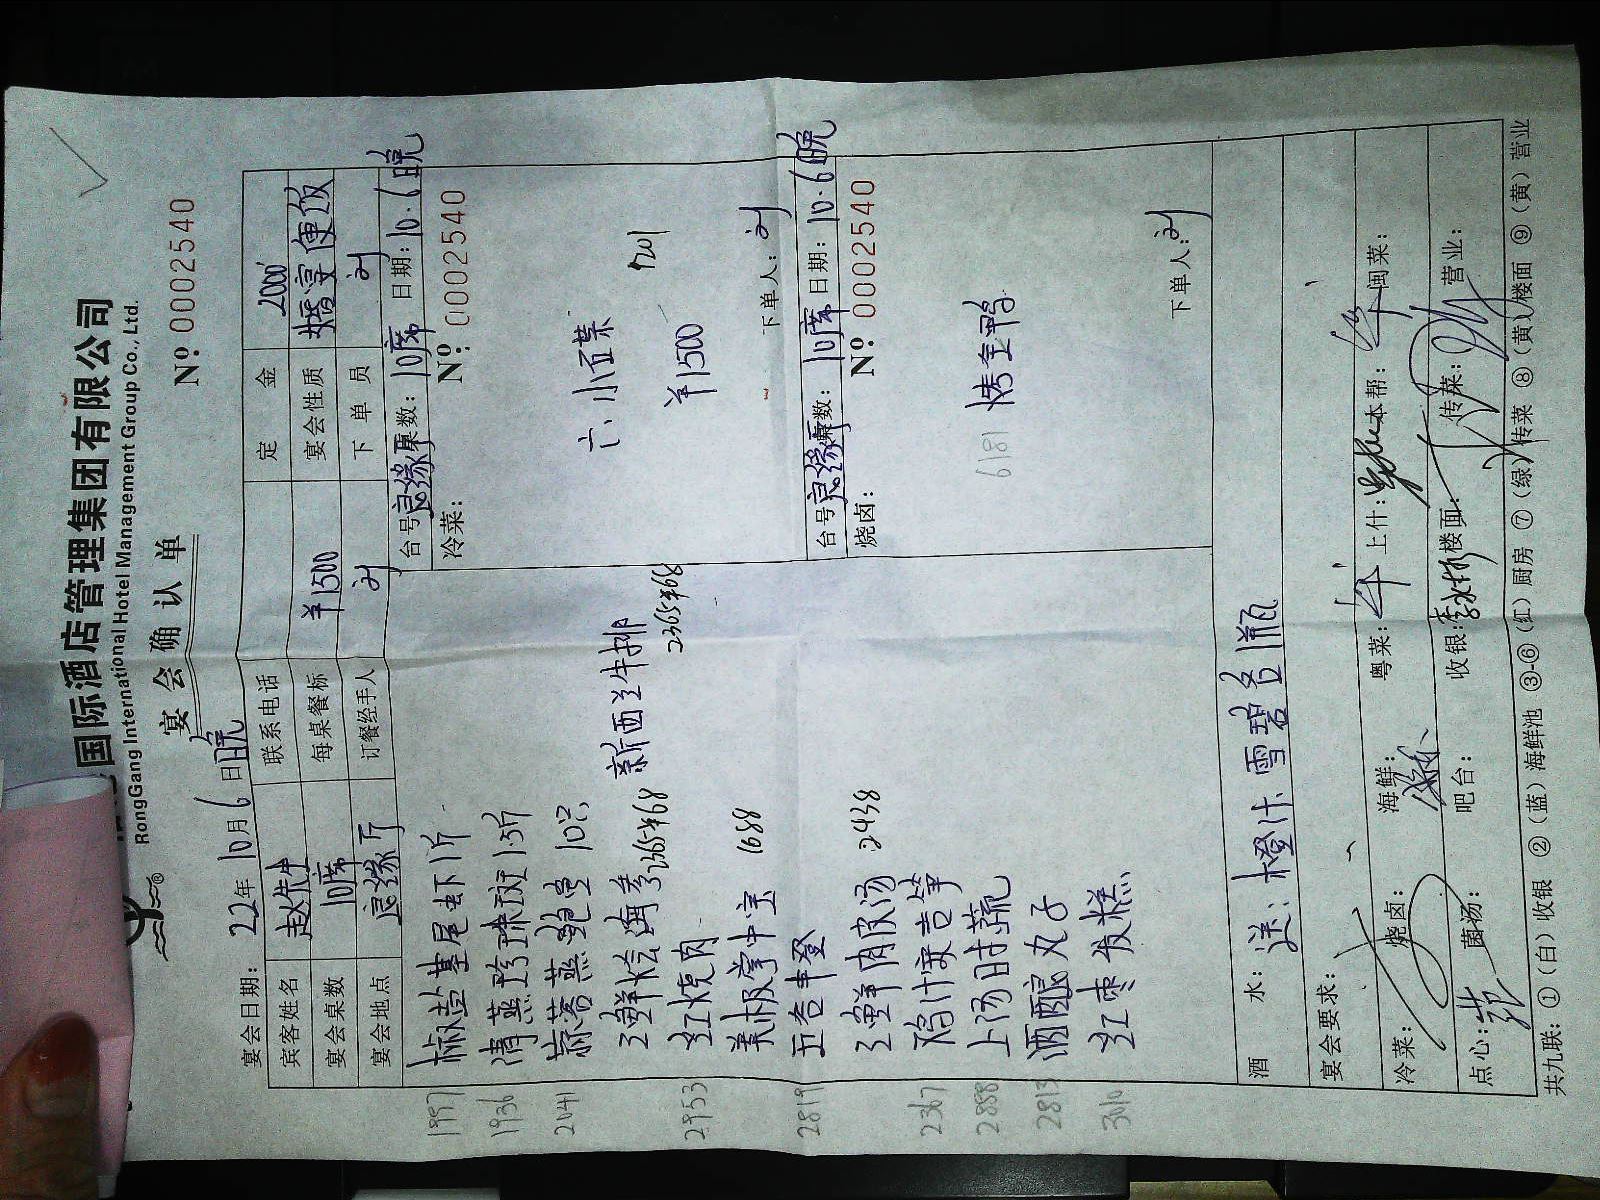 国际酒店管理集团有限公司
RongGang International Hotel Management Group Co., Ltd.
宴会确认单
№ 0002540
宴会日期： 22年 10月 6日晚
宾客姓名 赵先生 联系电话 定金 2000
宴会桌数 10席 每桌餐标 ¥1500 宴会性质 婚宴便饭
宴会地点 良缘厅 订餐经手人 刘 下单员 刘
1997 椒盐基尾虾1斤
1936 清蒸珍珠斑1.3斤
2041 蒜蓉蒸鲍鱼 10只
三鲜烩海参 2365¥68 新西兰牛排 2365¥68
2953 红烧肉
美极掌中宝 1688
2819 五谷丰登
三鲜肉皮汤 2438
2367 鸡汁寒吉笋
2888 上汤时蔬
2813 酒酿丸子
3010 红枣发糕
台号 良缘厅 桌数： 10席 日期： 10.6晚
冷菜： № 0002540
六小五荤
¥1500 1201
下单人：刘
台号 良缘厅 桌数： 10席 日期： 10.6晚
烧卤： № 0002540
6181 烤全鸭
下单人：刘
酒水： 送：橙汁雪碧各1瓶
宴会要求：
冷菜： 烧卤： 海鲜： 粤菜： 上什： 本帮： 闽菜：
点心： 菌汤： 吧台： 收银： 楼面： 传菜： 营业：
共九联：①（白）收银 ②（蓝）海鲜池 ③-⑥（红）厨房 ⑦（绿）传菜 ⑧（黄）楼面 ⑨（黄）营业